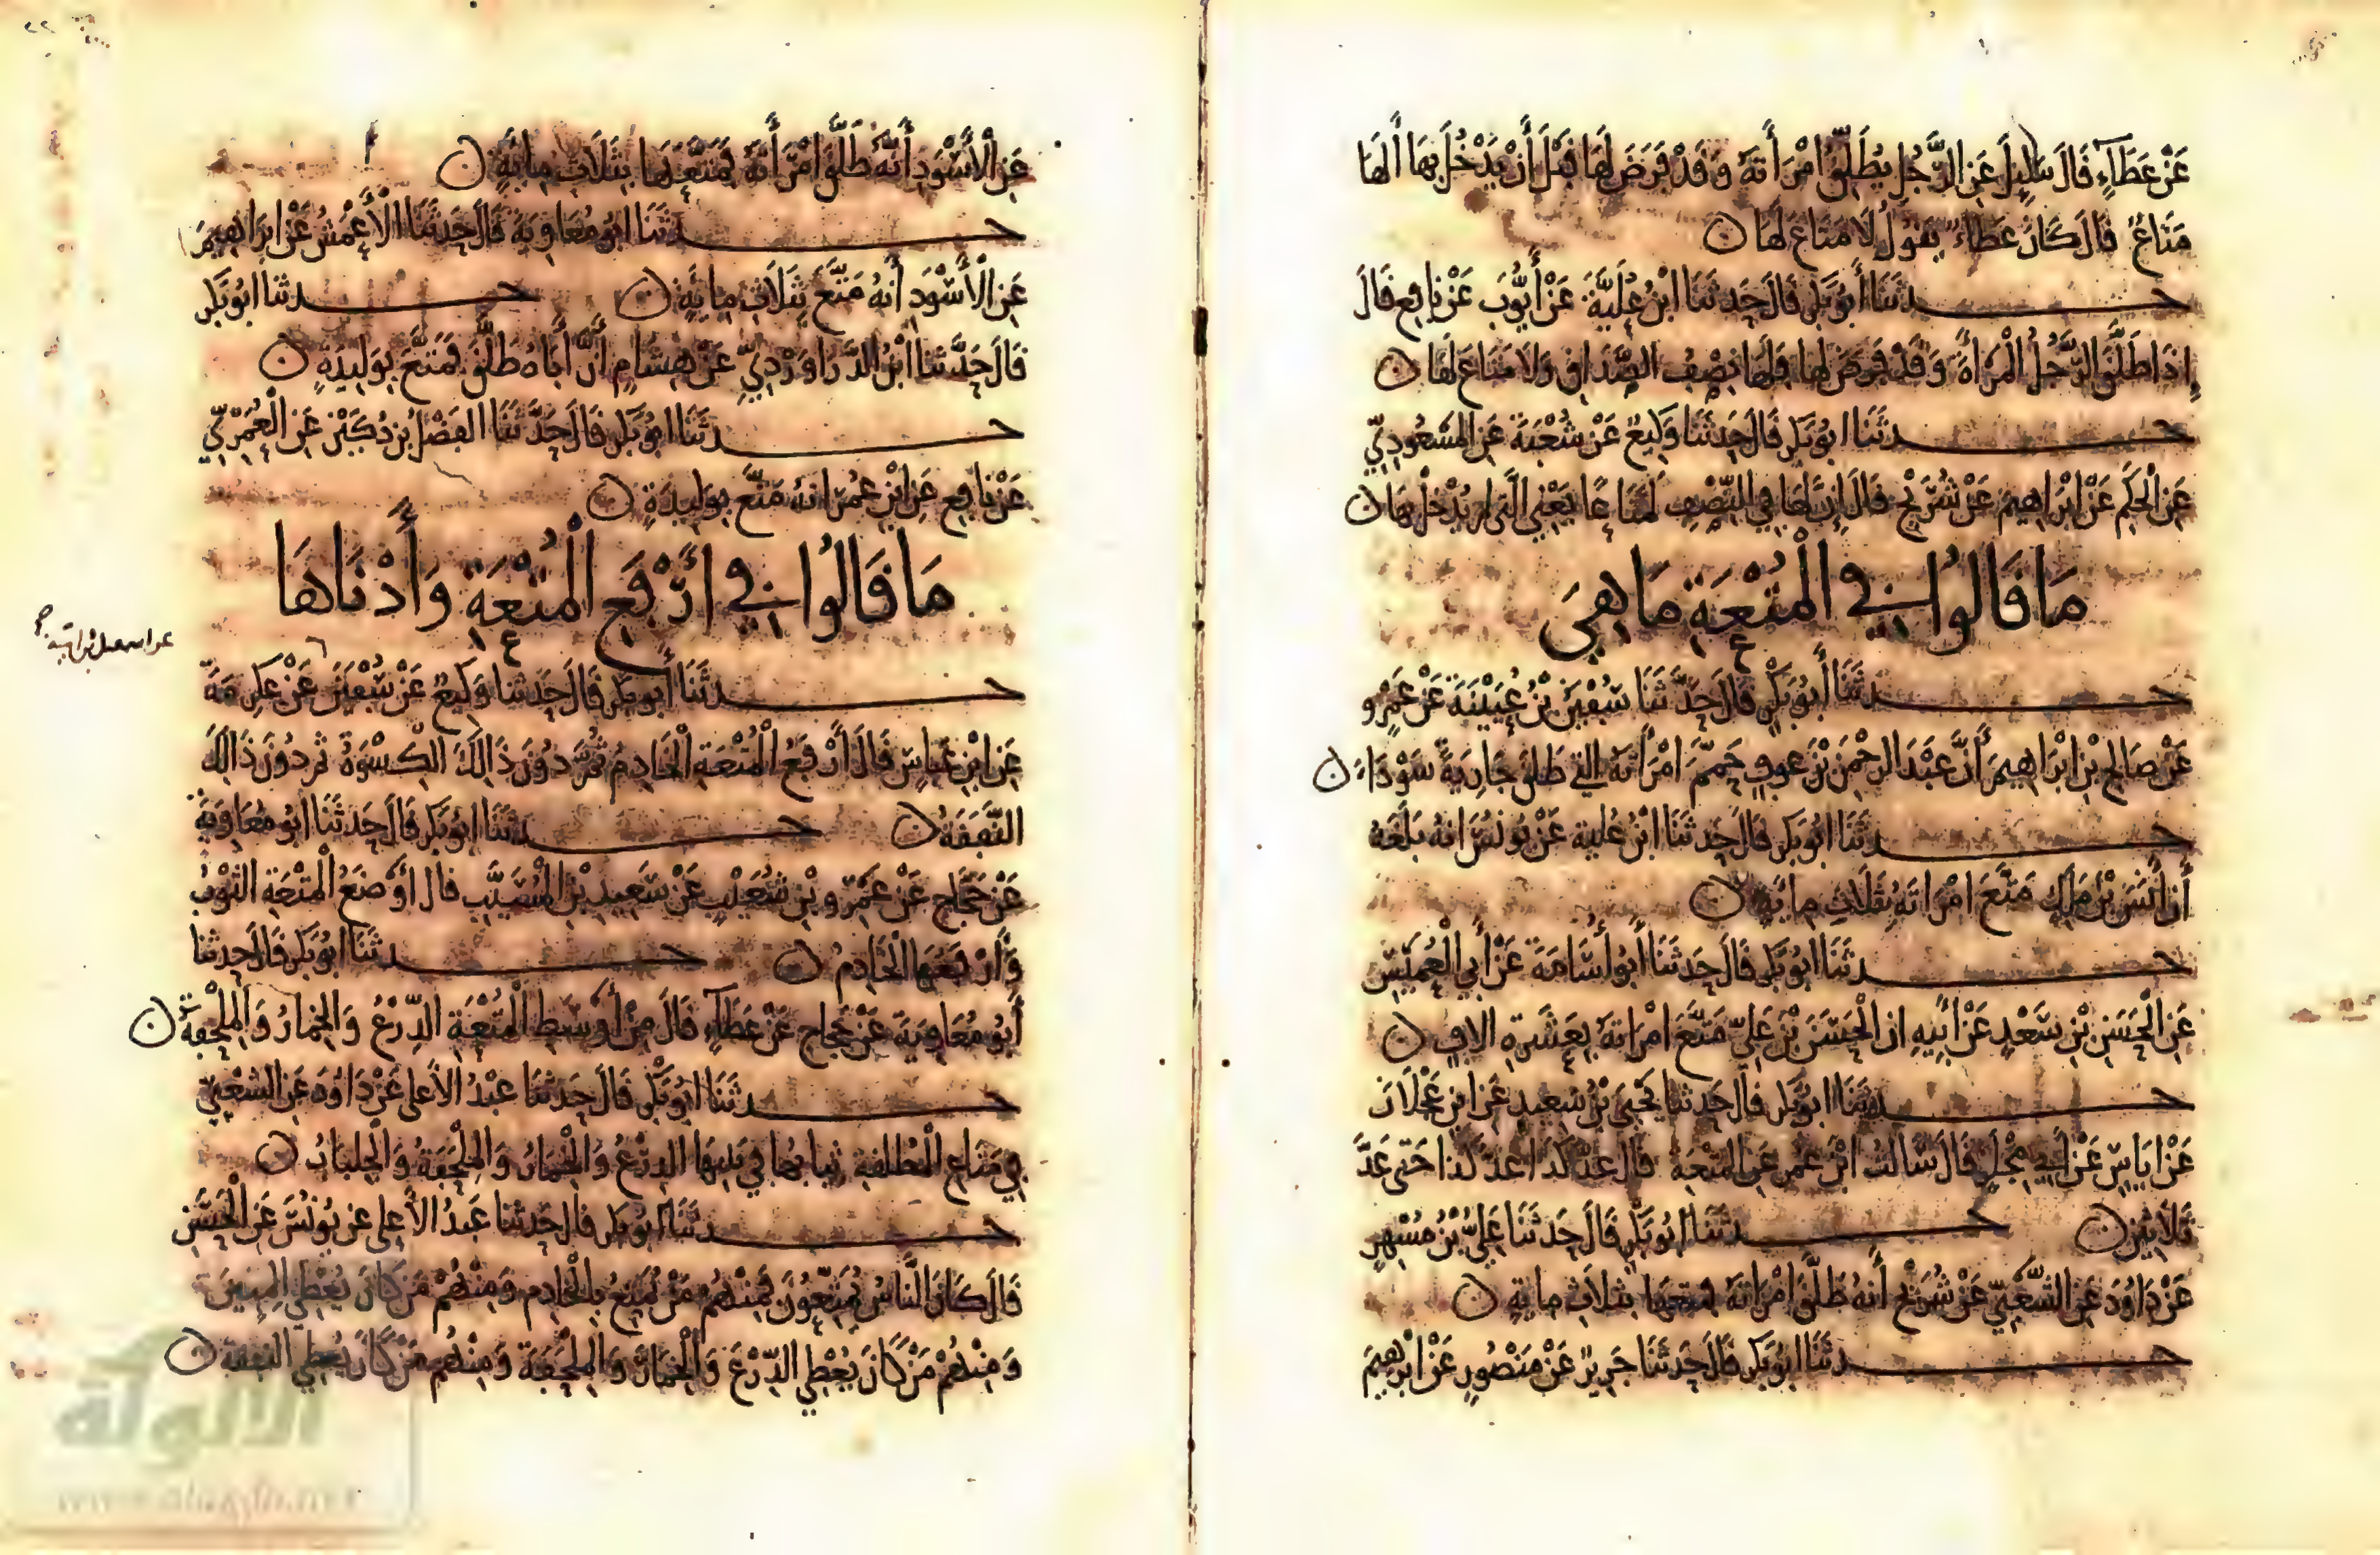 عَنْ عَطَاءٍ قَالَ سُئِلَ عَنِ الرَّجُلِ يُطَلِّقُ امْرَأَتَهُ وَقَدْ فَرَضَ لَهَا قَبْلَ أَنْ يَدْخُلَ بِهَا أَلَهَا
مَتَاعٌ قَالَ كَانَ عَطَاءٌ يَقُولُ لَا مَتَاعَ لَهَا ن
حــدثَنَا أَبُو بَكْرٍ قَالَ حَدثَنَا ابْنُ عُلَيَّةَ عَنْ أَيُّوبَ عَنْ نَافِعٍ قَالَ
إِذَا طَلَّقَ الرَّجُلُ الْمَرْأَةَ وَقَدْ فَرَضَ لَهَا فَلَهَا نِصْفُ الصَّدَاقِ وَلَا مَتَاعَ لَهَا ن
حــدثَنَا ابُو بَكْرٍ قَالَ حَدثَنَا وَكِيعٌ عَنْ شُعْبَةَ عَنِ الْمَسْعُودِيِّ
عَنِ الْحَكَمِ عَنْ ابْرَاهِيمَ عَنْ شُرَيْحٍ قَالَ إِنَّ لَهَا فِي النِّصْفِ لَمَتَاعًا يَعْنِي الَّتِي لم يُدْخَلْ بِهَا ن
مَا قَالُوا فِي الْمُتْعَةِ مَا هِيَ
حــدثَنَا أَبُو بَكْرٍ قَالَ حَدَّثَنَا سُفْيَنُ بْنُ عُيَيْنَةَ عَنْ عَمْرٍو
عَنْ صَالِحِ بْنِ ابْرَاهِيمَ أَنَّ عَبْدَ الرَّحْمَنِ بْنَ عَوفٍ حَمَّمَ امْرَأَتَهُ التِي طَلقَ جَارِيَةً سَوْدَاءَ ن
حــدثَنَا ابُو بَكْرٍ قَالَ حَدثَنَا ابْنُ عُلية عَنْ يُونُسَ انهُ بَلَغَهُ
أَن أَنَسَ بْنَ مَلِكٍ مَتَّعَ امْرَاتَهُ بِثَلَاثِ مِايَةٍ ن
حــدثَنَا ابُو بَكْرٍ قَالَ حَدثَنَا أَبُو أُسَامَةَ عَنْ أَبِي الْعُمَيْسِ
عَنِ الْحَسَنِ بْنِ سَعْدٍ عَنْ أَبِيهِ ان الْحَسَنَ بْنَ عَلِيٍّ مَتَّعَ امْرَاتَهُ بِعَشَرَةِ الافٍ ن
حــدثَنَا ابُو بَكْرٍ قَالَ حَدثَنَا يَحْيَى بْنُ سَعِيدٍ عَنِ ابْنِ عَجْلَانَ
عَنْ ايَاسٍ عَنْ أَبِي مِجْلَزٍ قَالَ سَالتُ ابْنَ عُمَرَ عَنِ الْمُتْعَةِ قَالَ عد كَذَا عد كَذَا حَتى عَدَّ
ثَلَاثِينَ ن حــدثَنَا ابُو بَكْرٍ قَالَ حَدثَنَا عَلِيُّ بْنُ مُسْهِرٍ
عَنْ دَاوُدَ عَنِ الشَّعْبِيِّ عَنْ شُرَيْحٍ أَنهُ طَلَّقَ امْرَاتَهُ فَمَتعَهَا بِثَلَاثِ مِايَةٍ ن
حــدثَنَا ابُو بَكْرٍ قَالَ حَدثَنَا جَرِيرٌ عَنْ مَنْصُورٍ عَنْ ابْرهِيمَ
عَنِ الْأَسْوَدِ أَنَّهُ طَلَّقَ امْرَأَتَهُ فَمَتَّعَهَا بِثَلَاثِ مِايَةٍ ن
حــدثَنَا ابُو مُعَاوِيَةَ قَالَ حَدثَنَا الْأَعْمَشُ عَنْ ابْرَاهِيمَ
عَنِ الْأَسْوَدِ أَنهُ مَتَّعَ بِثَلَاثِ مِايَةٍ ن حــدثنا ابُو بَكْرٍ
قَالَ حَدَّثَنَا ابْنُ الدَّرَاوَرْدِيِّ عَنْ هِشَامٍ أَنَّ أَبَاهُ طَلَّقَ فَمَتَّعَ بِوَلِيدَةٍ ن
حــدثَنَا ابُو بَكْرٍ قَالَ حَدَّثَنَا الفَضْلُ بْنُ دُكَيْنٍ عَنِ الْعُمَرِيِّ
عَنْ نَافِعٍ عَنِ ابْنِ عُمَرَ انهُ مَتَّعَ بِوَلِيدَةٍ ن
مَا قَالُوا فِي ارْفَعِ الْمُتْعَةِ وَأَدْنَاهَا
حــدثَنَا أَبُو بَكْرٍ قَالَ حَدثَنَا وَكِيعٌ عَنْ سُفْيَنَ عَنْ عِكْرِمَةَ
عن اسمعيل بن امية
عَنِ ابْنِ عَبَّاسٍ قَالَ أَرْفَعُ الْمُتْعَةِ الْخَادِمُ ثُمَّ دُونَ ذَالِكَ الْكِسْوَةُ ثم دُونَ ذَالِكَ
النَّفَقَةُ ن حــدثَنَا ابُو بَكْرٍ قَالَ حَدثَنَا ابُو مُعَاوِيَةَ
عَنْ حَجَّاجٍ عَنْ عَمْرِو بْنِ شُعَيْبٍ عَنْ سَعِيدِ بْنِ الْمُسَيَّبِ قال أَوْضَعُ الْمُتْعَةِ الثَّوْبُ
وَأَرْفَعُهَا الْخَادِمُ ن حــدثَنَا ابُو بَكْرٍ قَالَ حَدثنَا
أَبُو مُعَاوِيَةَ عَنْ حَجاجٍ عَنْ عَطَاءٍ قَالَ مِنْ أَوْسَطِ الْمُتْعَةِ الدِّرْعُ وَالْخِمَارُ وَالْمِلْحَفَةُ ن
حــدثَنَا ابُو بَكْرٍ قَالَ حَدثَنَا عَبْدُ الأَعلى عَنْ دَاوُدَ عَنِ الشَّعْبِيِّ
فِي مَتَاعِ الْمُطَلقةِ ثِيَابُهَا فِي بَيْتِهَا الدِرْعُ وَالْخِمَارُ وَالْمِلْحَفَةُ وَالْجِلْبَابُ ن
حــدثَنَا ابُو بَكْرٍ قَالَ حَدثَنَا عَبدُ الأَعلى عن يُونُسَ عَنِ الْحَسَنِ
قَالَ كَانَ النَّاسُ يُمَتِّعُونَ فَمِنْهُمْ مَنْ يُمَتِّعُ بِالْخَادِمِ وَمِنْهُمْ مَنْ كَانَ يُعْطِي الْمِئِينَ
وَمِنْهُمْ مَنْ كَانَ يُعْطِي الدِّرْعَ وَالْخِمَارَ وَالْمِلْحَفَةَ وَمِنْهُمْ مَنْ كَانَ يُعْطِي النَّفَقَةَ ن
الألوكة